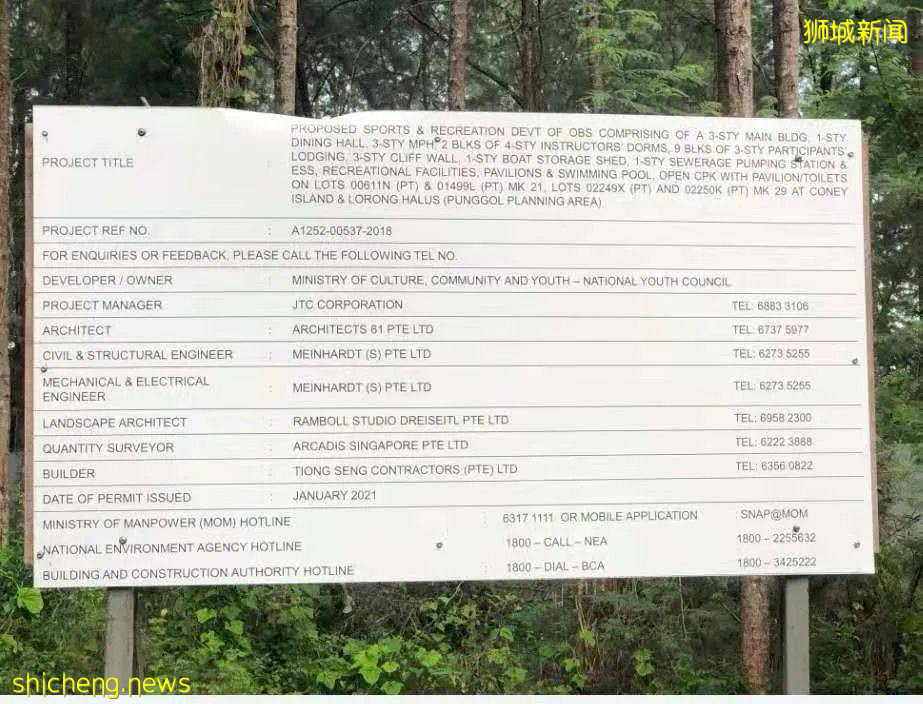 狮城新闻
PROJECT TITLE : PROPOSED SPORTS & RECREATION DEVT OF OBS COMPRISING OF A 3-STY MAIN BLDG, 1-STY
DINING HALL, 3-STY MPH, 2 BLKS OF 4-STY INSTRUCTORS' DORMS, 9 BLKS OF 3-STY PARTICIPANTS
LODGING, 3-STY CLIFF WALL, 1-STY BOAT STORAGE SHED, 1-STY SEWERAGE PUMPING STATION &
ESS, RECREATIONAL FACILITIES, PAVILIONS & SWIMMING POOL, OPEN CPK WITH PAVILION/TOILETS
ON LOTS 00611N (PT) & 01499L (PT) MK 21, LOTS 02249X (PT) AND 02250K (PT) MK 29 AT CONEY
ISLAND & LORONG HALUS (PUNGGOL PLANNING AREA)
PROJECT REF NO. : A1252-00537-2018
FOR ENQUIRIES OR FEEDBACK, PLEASE CALL THE FOLLOWING TEL NO.
DEVELOPER / OWNER : MINISTRY OF CULTURE, COMMUNITY AND YOUTH – NATIONAL YOUTH COUNCIL
PROJECT MANAGER : JTC CORPORATION TEL: 6883 3106
ARCHITECT : ARCHITECTS 61 PTE LTD TEL: 6737 5977
CIVIL & STRUCTURAL ENGINEER : MEINHARDT (S) PTE LTD TEL: 6273 5255
MECHANICAL & ELECTRICAL
ENGINEER : MEINHARDT (S) PTE LTD TEL: 6273 5255
LANDSCAPE ARCHITECT : RAMBOLL STUDIO DREISEITL PTE LTD TEL: 6958 2300
QUANTITY SURVEYOR : ARCADIS SINGAPORE PTE LTD TEL: 6222 3888
BUILDER : TIONG SENG CONTRACTORS (PTE) LTD TEL: 6356 0822
DATE OF PERMIT ISSUED : JANUARY 2021
MINISTRY OF MANPOWER (MOM) HOTLINE : 6317 1111 OR MOBILE APPLICATION SNAP@MOM
NATIONAL ENVIRONMENT AGENCY HOTLINE : 1800 – CALL – NEA 1800 – 2255632
BUILDING AND CONSTRUCTION AUTHORITY HOTLINE : 1800 – DIAL – BCA 1800 – 3425222
shicheng.news